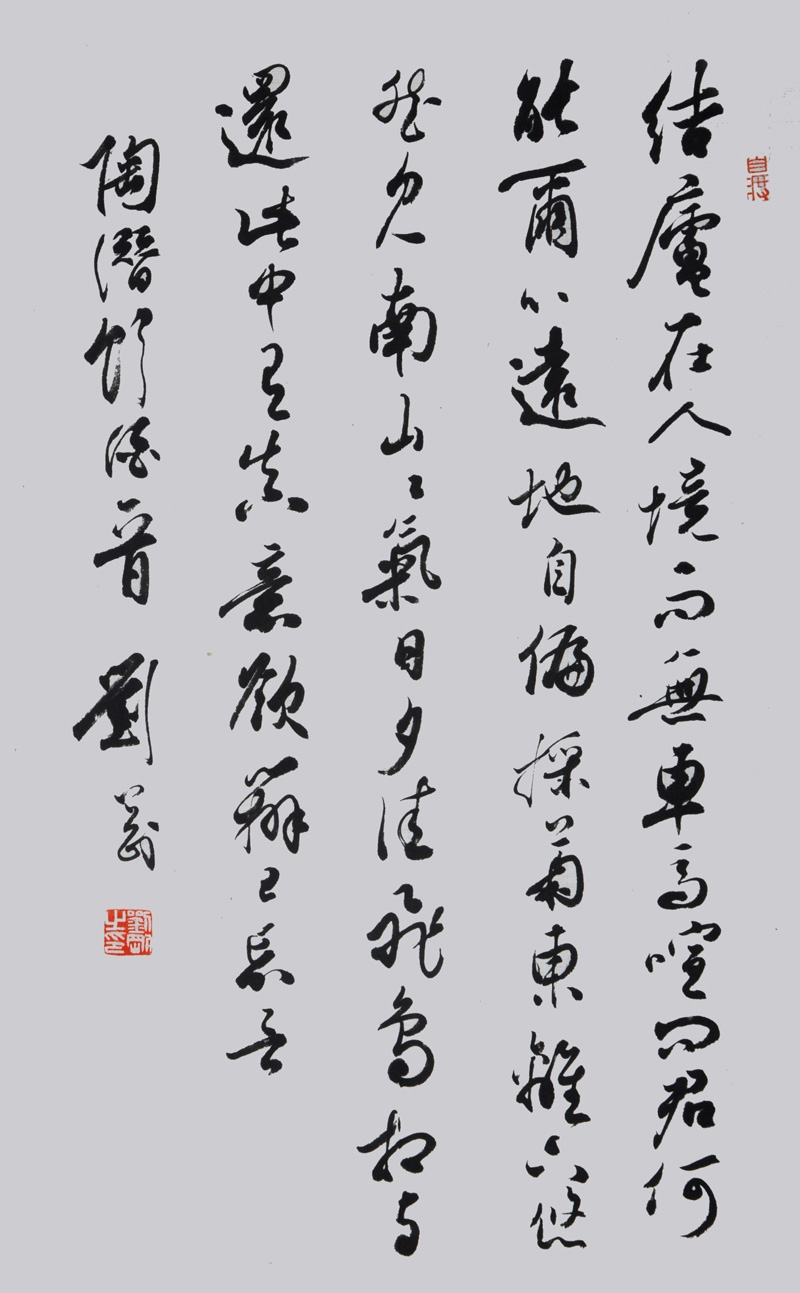 结廬在人境而無車馬喧问君何
能爾心遠地自偏採菊東籬下悠
然見南山々氣日夕佳飛鳥相与
還此中有真意欲辯已忘言
陶潜飲酒一首 劉